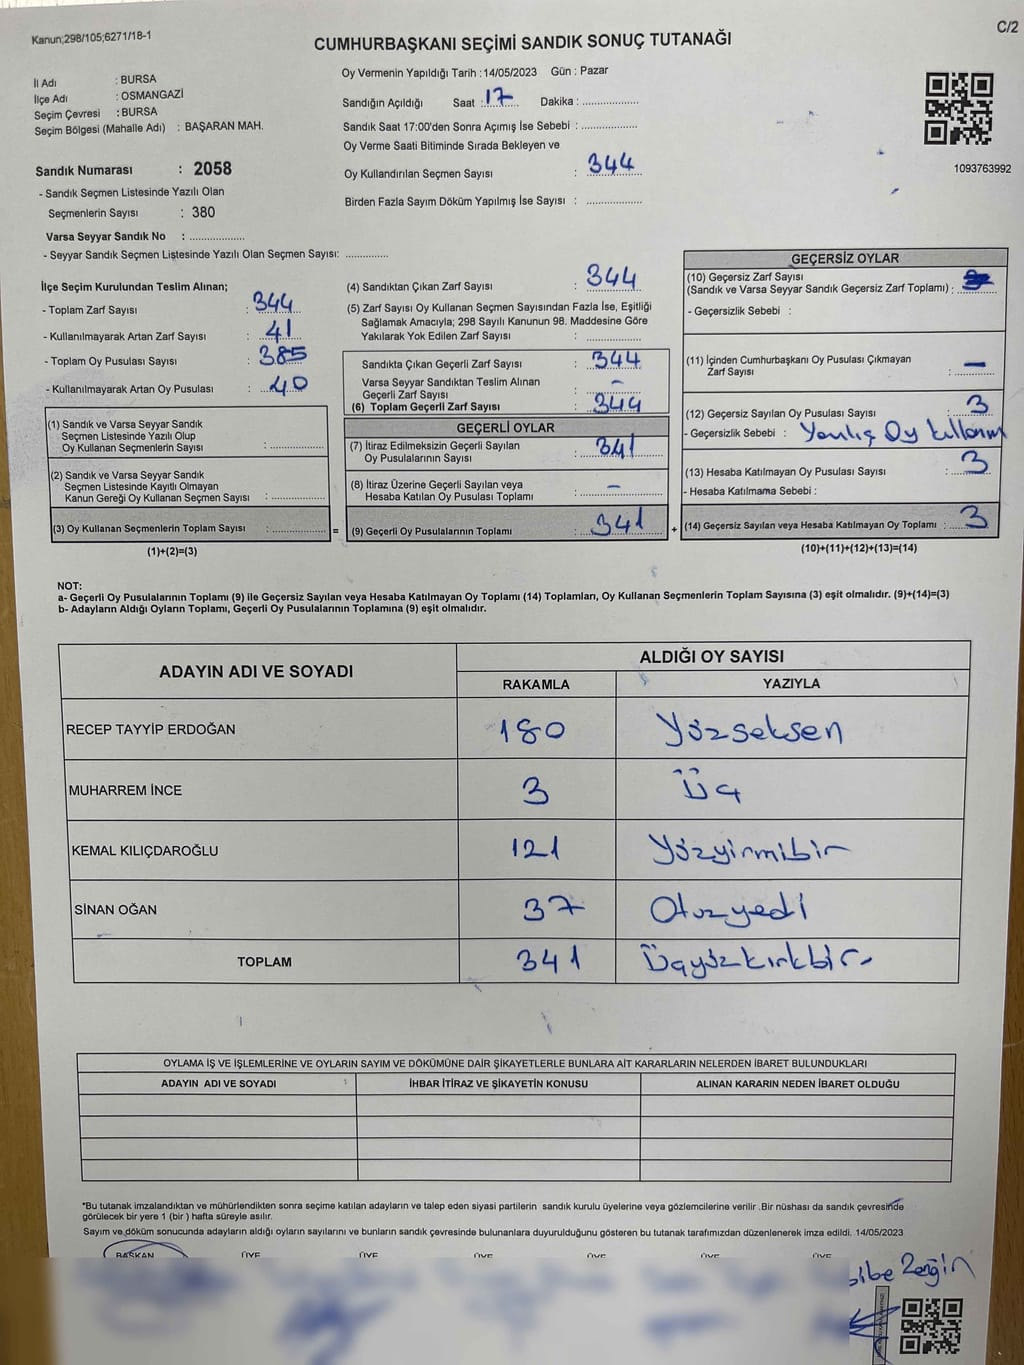 Kanun;298/105;6271/18-1
C/2
CUMHURBAŞKANI SEÇİMİ SANDIK SONUÇ TUTANAĞI
İl Adı : BURSA
İlçe Adı : OSMANGAZİ
Seçim Çevresi : BURSA
Seçim Bölgesi (Mahalle Adı) : BAŞARAN MAH.
Sandık Numarası : 2058
- Sandık Seçmen Listesinde Yazılı Olan
Seçmenlerin Sayısı : 380
Varsa Seyyar Sandık No : ..................
- Seyyar Sandık Seçmen Listesinde Yazılı Olan Seçmen Sayısı: ..............
Oy Vermenin Yapıldığı Tarih : 14/05/2023 Gün : Pazar
Sandığın Açıldığı Saat : 17 Dakika : ..................
Sandık Saat 17:00'den Sonra Açımış İse Sebebi : ..................
Oy Verme Saati Bitiminde Sırada Bekleyen ve
Oy Kullandırılan Seçmen Sayısı : 344
Birden Fazla Sayım Döküm Yapılmış İse Sayısı : ..................
1093763992
İlçe Seçim Kurulundan Teslim Alınan;
- Toplam Zarf Sayısı : 344
- Kullanılmayarak Artan Zarf Sayısı : 41
- Toplam Oy Pusulası Sayısı : 385
- Kullanılmayarak Artan Oy Pusulası : 40
(1) Sandık ve Varsa Seyyar Sandık
Seçmen Listesinde Yazılı Olup
Oy Kullanan Seçmenlerin Sayısı : ..................
(2) Sandık ve Varsa Seyyar Sandık
Seçmen Listesinde Kayıtlı Olmayan
Kanun Gereği Oy Kullanan Seçmen Sayısı : ..................
(3) Oy Kullanan Seçmenlerin Toplam Sayısı : ..................
(1)+(2)=(3)
=
(4) Sandıktan Çıkan Zarf Sayısı : 344
(5) Zarf Sayısı Oy Kullanan Seçmen Sayısından Fazla İse, Eşitliği
Sağlamak Amacıyla; 298 Sayılı Kanunun 98. Maddesine Göre
Yakılarak Yok Edilen Zarf Sayısı : ..................
Sandıkta Çıkan Geçerli Zarf Sayısı : 344
Varsa Seyyar Sandıktan Teslim Alınan
Geçerli Zarf Sayısı : -
(6) Toplam Geçerli Zarf Sayısı : 344
GEÇERLİ OYLAR
(7) İtiraz Edilmeksizin Geçerli Sayılan
Oy Pusulalarının Sayısı : 341
(8) İtiraz Üzerine Geçerli Sayılan veya
Hesaba Katılan Oy Pusulası Toplamı : -
(9) Geçerli Oy Pusulalarının Toplamı : 341
+
GEÇERSİZ OYLAR
(10) Geçersiz Zarf Sayısı
(Sandık ve Varsa Seyyar Sandık Geçersiz Zarf Toplamı) :
- Geçersizlik Sebebi :
(11) İçinden Cumhurbaşkanı Oy Pusulası Çıkmayan
Zarf Sayısı : -
(12) Geçersiz Sayılan Oy Pusulası Sayısı : 3
- Geçersizlik Sebebi : Yanlış Oy kullanım
(13) Hesaba Katılmayan Oy Pusulası Sayısı : 3
- Hesaba Katılmama Sebebi :
(14) Geçersiz Sayılan veya Hesaba Katılmayan Oy Toplamı : 3
(10)+(11)+(12)+(13)=(14)
NOT:
a- Geçerli Oy Pusulalarının Toplamı (9) ile Geçersiz Sayılan veya Hesaba Katılmayan Oy Toplamı (14) Toplamları, Oy Kullanan Seçmenlerin Toplam Sayısına (3) eşit olmalıdır. (9)+(14)=(3)
b- Adayların Aldığı Oyların Toplamı, Geçerli Oy Pusulalarının Toplamına (9) eşit olmalıdır.
ADAYIN ADI VE SOYADI ALDIĞI OY SAYISI
RAKAMLA YAZIYLA
RECEP TAYYİP ERDOĞAN 180 Yüzseksen
MUHARREM İNCE 3 Üç
KEMAL KILIÇDAROĞLU 121 Yüzyirmibir
SİNAN OĞAN 37 Otuzyedi
TOPLAM 341 Üçyüzkırkbir
OYLAMA İŞ VE İŞLEMLERİNE VE OYLARIN SAYIM VE DÖKÜMÜNE DAİR ŞİKAYETLERLE BUNLARA AİT KARARLARIN NELERDEN İBARET BULUNDUKLARI
ADAYIN ADI VE SOYADI İHBAR İTİRAZ VE ŞİKAYETİN KONUSU ALINAN KARARIN NEDEN İBARET OLDUĞU
*Bu tutanak imzalandıktan ve mühürlendikten sonra seçime katılan adayların ve talep eden siyasi partilerin sandık kurulu üyelerine veya gözlemcilerine verilir .Bir nüshası da sandık çevresinde
görülecek bir yere 1 (bir ) hafta süreyle asılır.
Sayım ve döküm sonucunda adayların aldığı oyların sayılarını ve bunların sandık çevresinde bulunanlara duyurulduğunu gösteren bu tutanak tarafımızdan düzenlenerek imza edildi. 14/05/2023
BAŞKAN ÜYE ÜYE ÜYE ÜYE ÜYE ÜYE
Zengin